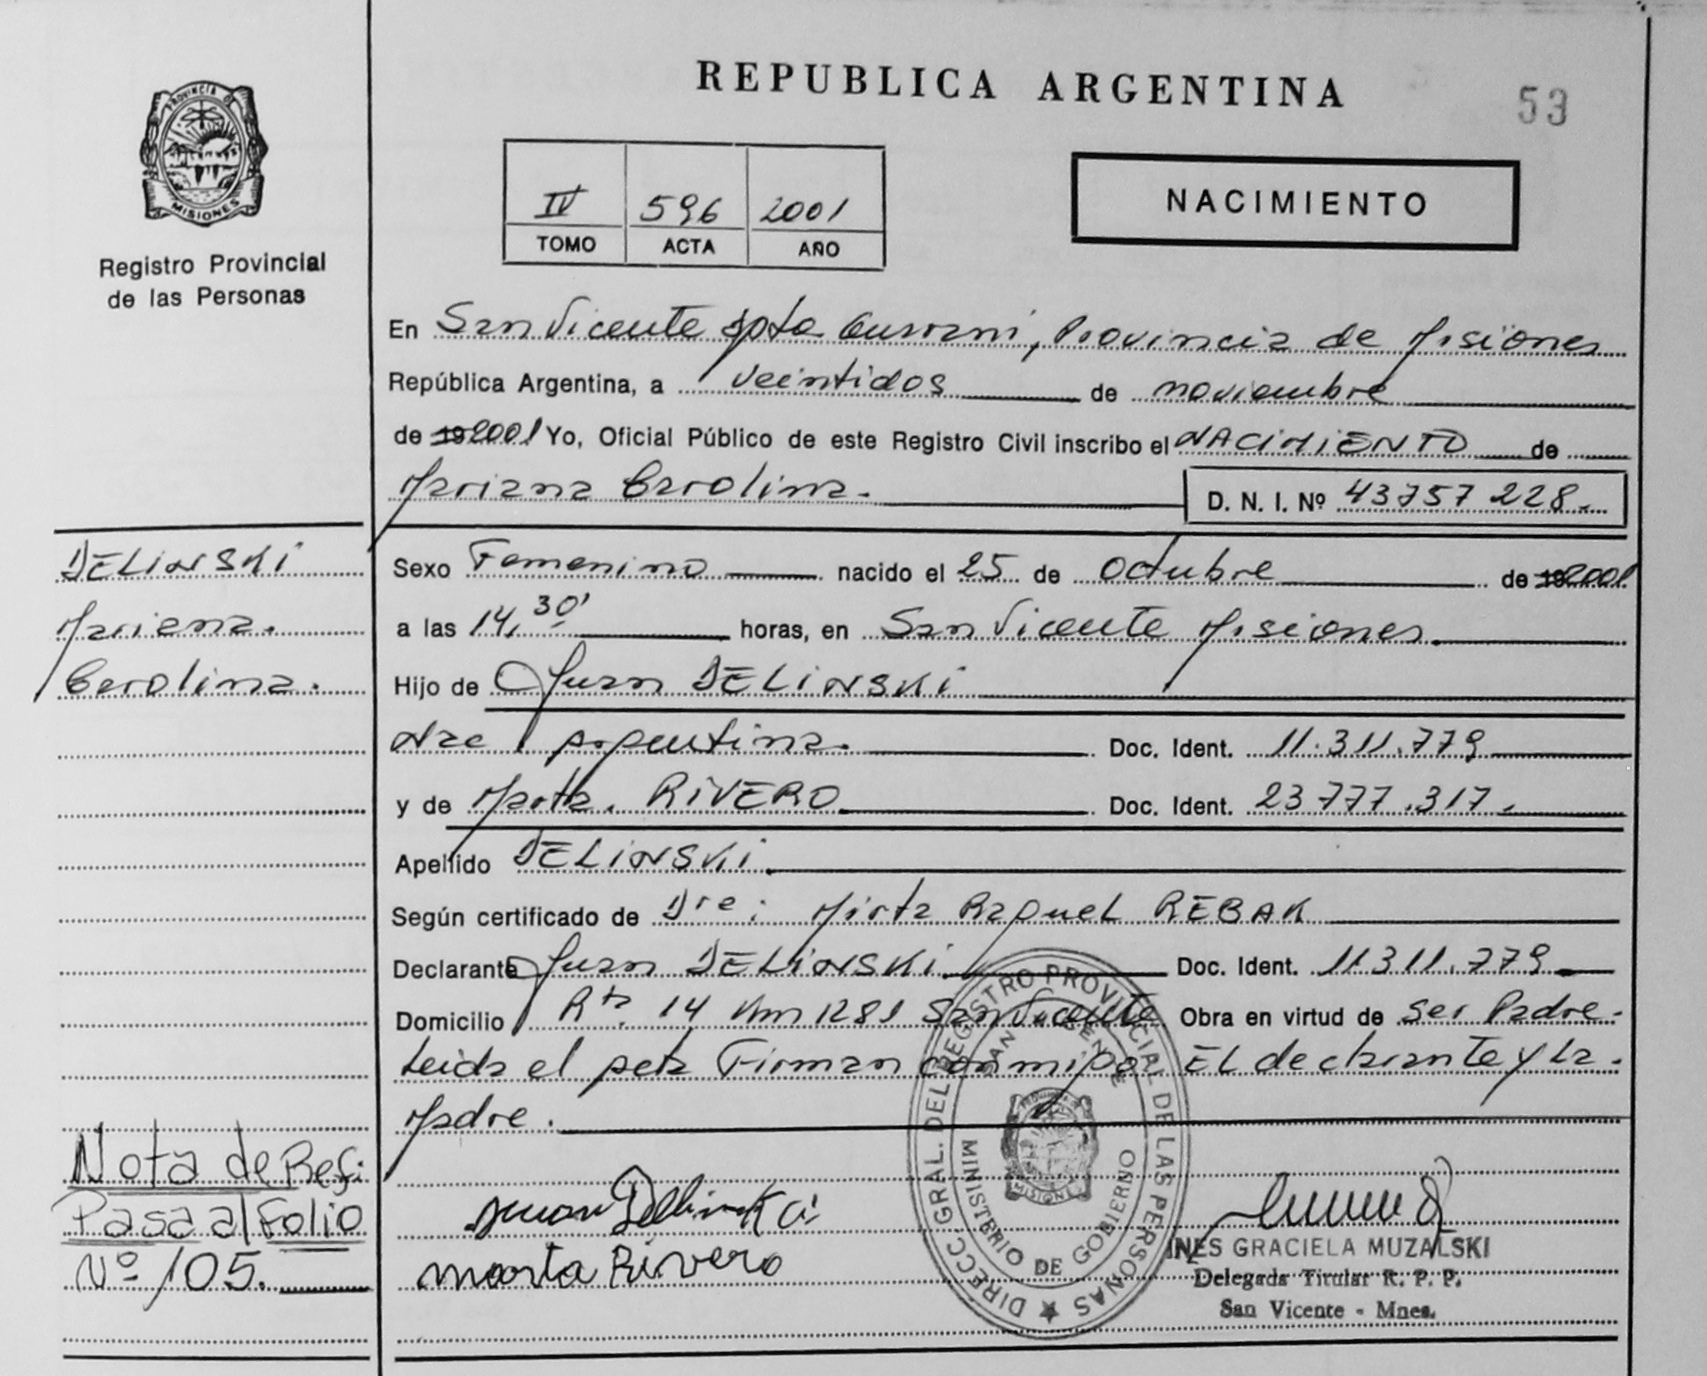 REPUBLICA ARGENTINA
53
PROVINCIA DE
MISIONES
Registro Provincial
de las Personas
IV 596 2001
TOMO ACTA AÑO
NACIMIENTO
En San Vicente Dpto Guarani, Provincia de Misiones
República Argentina, a veintidos de noviembre
de 19 2001 Yo, Oficial Público de este Registro Civil inscribo el NACIMIENTO de
Mariana Carolina.
D. N. I. Nº 43757228.
DELINSKI
Mariana.
Carolina.
Sexo Femenino nacido el 25 de octubre de 19 2001
a las 14,30' horas, en San Vicente Misiones.
Hijo de Juan DELINSKI
Nac Argentina. Doc. Ident. 11.311.779
y de Marta. RIVERO Doc. Ident. 23777.317.
Apellido DELINSKI.
Según certificado de Dra: Mirta Raquel REBAK
Declarante Juan DELINSKI Doc. Ident. 11311.779
Domicilio Rta. 14 Km 1281 San Vicente Obra en virtud de ser Padre.
Leida el acta Firman conmigo: EL declarante y La.
Madre.
Nota de Ref:
Pasa al Folio
Nº 105.
Juan Dellinski
Marta Rivero
DIRECC GRAL. DEL REGISTRO PROVINCIAL DE LAS PERSONAS
SAN VICENTE
MINISTERIO DE GOBIERNO
MISIONES
INES GRACIELA MUZALSKI
Delegada Titular R. P. P.
San Vicente - Mnes.